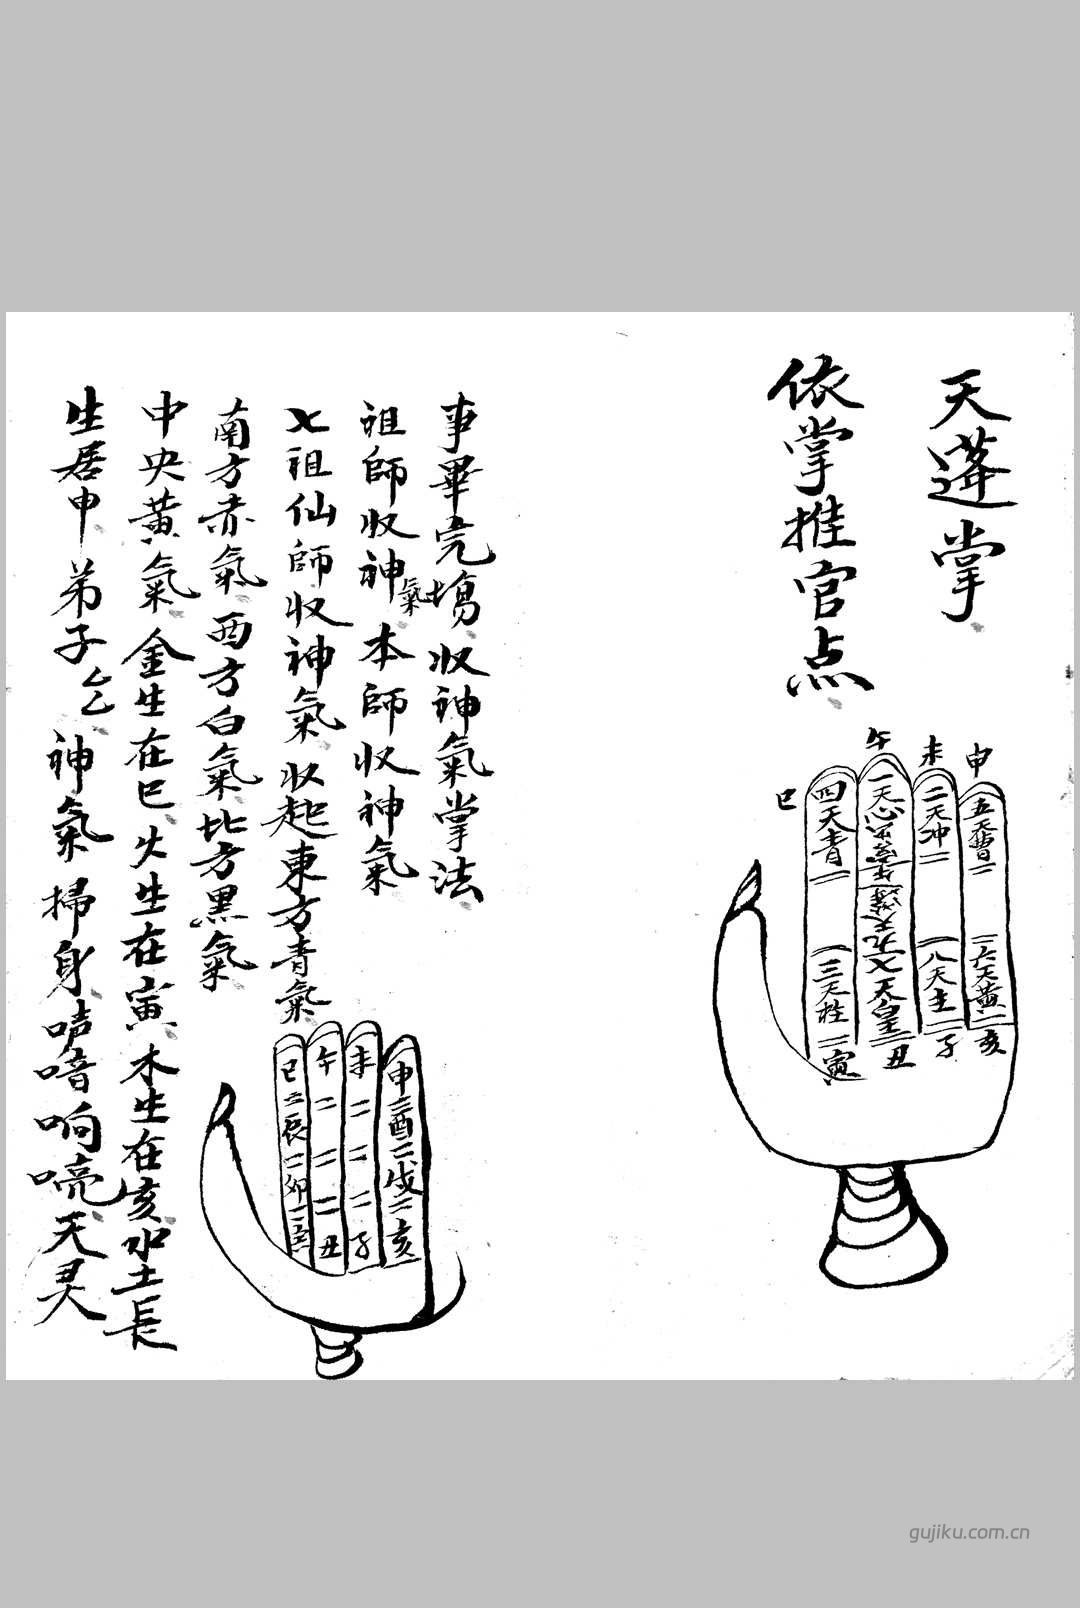 天蓬掌
依掌推官点
申
未
午
巳
五天曹
二天冲
一天心
四天青
六天黄
八天主
七天皇
三天柱
亥
子
丑
寅
事畢完塲收神氣掌法
祖師收神氣本師收神氣
七祖仙師收神氣收起東方青氣
南方赤氣西方白氣北方黑氣
中央黃氣金生在巳火生在寅木生在亥水土長
生居申弟子厶乙神氣掃身咭喑响喨天灵
申酉戌亥
未子
午丑
巳辰卯寅
gujiku.com.cn